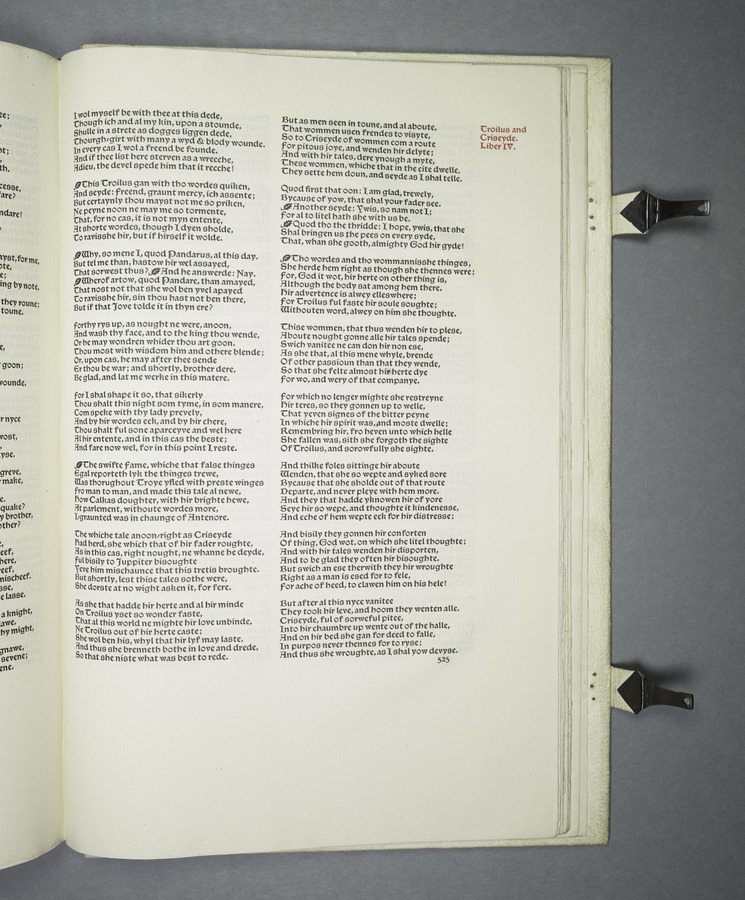 ee;
,
nt;
,
th.
cesse,
are?
ndare!
,
ayst, for me,
ote,
e;
ing by note,
they roune;
toune.
e,
goon;
wounde.
r nyce
vost,
yse.
greve,
make,
e.
quake?
y brother,
other?
e,
eef,
here,
reef,
mischeef.
sse,
e lasse.
a knight,
lawe.
hy might,
gnawe,
sevene;
ene.
I wol myself be with thee at this dede,
Though ich and al my kin, upon a stounde,
Shulle in a strete as dogges liggen dede,
Thourgh-girt with many a wyd & blody wounde.
In every cas I wol a freend be founde.
And if thee list here sterven as a wrecche,
Adieu, the devel spede him that it recche!
This Troilus gan with tho wordes quiken,
And seyde: Freend, graunt mercy, ich assente;
But certaynly thou mayst not me so priken,
Ne peyne noon ne may me so tormente,
That, for no cas, it is not myn entente,
At shorte wordes, though I dyen sholde,
To ravisshe hir, but if hirself it wolde.
Why, so mene I, quod Pandarus, al this day.
But tel me than, hastow hir wel assayed,
That sorwest thus? And he answerde: Nay.
Wherof artow, quod Pandare, than amayed,
That nost not that she wol ben yvel apayed
To ravisshe hir, sin thou hast not ben there,
But if that Jove tolde it in thyn ere?
Forthy rys up, as nought ne were, anoon,
And wash thy face, and to the king thou wende,
Or he may wondren whider thou art goon.
Thou most with wisdom him and othere blende;
Or, upon cas, he may after thee sende
Er thou be war; and shortly, brother dere,
Be glad, and lat me werke in this matere.
For I shal shape it so, that sikerly
Thou shalt this night som tyme, in som manere,
Com speke with thy lady prevely,
And by hir wordes eek, and by hir chere,
Thou shalt ful sone aparceyve and wel here
Al hir entente, and in this cas the beste;
And fare now wel, for in this point I reste.
The swifte Fame, whiche that false thinges
Egal reporteth lyk the thinges trewe,
Was thorughout Troye yfled with preste winges
Fro man to man, and made this tale al newe,
How Calkas doughter, with hir brighte hewe,
At parlement, withoute wordes more,
Ygraunted was in chaunge of Antenore.
The whiche tale anoon-right as Criseyde
Had herd, she which that of hir fader roughte,
As in this cas, right nought, ne whanne he deyde,
Ful bisily to Juppiter bisoughte
Yeve him mischaunce that this tretis broughte.
But shortly, lest thise tales sothe were,
She dorste at no wight asken it, for fere.
As she that hadde hir herte and al hir minde
On Troilus yset so wonder faste,
That al this world ne mighte hir love unbinde,
Ne Troilus out of hir herte caste;
She wol ben his, whyl that hir lyf may laste.
And thus she brenneth bothe in love and drede,
So that she niste what was best to rede.
But as men seen in toune, and al aboute,
That wommen usen frendes to visyte,
So to Criseyde of wommen com a route
For pitous joye, and wenden hir delyte;
And with hir tales, dere ynough a myte,
These wommen, whiche that in the cite dwelle,
They sette hem doun, and seyde as I shal telle.
Quod first that oon: I am glad, trewely,
Bycause of yow, that shal your fader see.
Another seyde: Ywis, so nam not I;
For al to litel hath she with us be.
Quod tho the thridde: I hope, ywis, that she
Shal bringen us the pees on every syde,
That, whan she gooth, almighty God hir gyde!
Tho wordes and tho wommannisshe thinges,
She herde hem right as though she thennes were;
For, God it wot, hir herte on other thing is,
Although the body sat among hem there.
Hir advertence is alwey elleswhere;
For Troilus ful faste hir soule soughte;
Withouten word, alwey on him she thoughte.
Thise wommen, that thus wenden hir to plese,
Aboute nought gonne alle hir tales spende;
Swich vanitee ne can don hir non ese,
As she that, al this mene whyle, brende
Of other passioun than that they wende,
So that she felte almost hir herte dye
For wo, and wery of that companye.
For which no lenger mighte she restreyne
Hir teres, so they gonnen up to welle,
That yeven signes of the bitter peyne
In whiche hir spirit was, and moste dwelle;
Remembring hir, fro heven unto which helle
She fallen was, sith she forgoth the sighte
Of Troilus, and sorowfully she sighte.
And thilke foles sittinge hir aboute
Wenden, that she so wepte and syked sore
Bycause that she sholde out of that route
Departe, and never pleye with hem more.
And they that hadde yknowen hir of yore
Seye hir so wepe, and thoughte it kindenesse,
And eche of hem wepte eek for hir distresse;
And bisily they gonnen hir conforten
Of thing, God wot, on which she litel thoughte;
And with hir tales wenden hir disporten,
And to be glad they often hir bisoughte.
But swich an ese therwith they hir wroughte
Right as a man is esed for to fele,
For ache of heed, to clawen him on his hele!
But after al this nyce vanitee
They took hir leve, and hoom they wenten alle.
Criseyde, ful of sorweful pitee,
Into hir chaumbre up wente out of the halle,
And on hir bed she gan for deed to falle,
In purpos never thennes for to ryse;
And thus she wroughte, as I shal yow devyse.
525
Troilus and
Criseyde.
Liber IV.